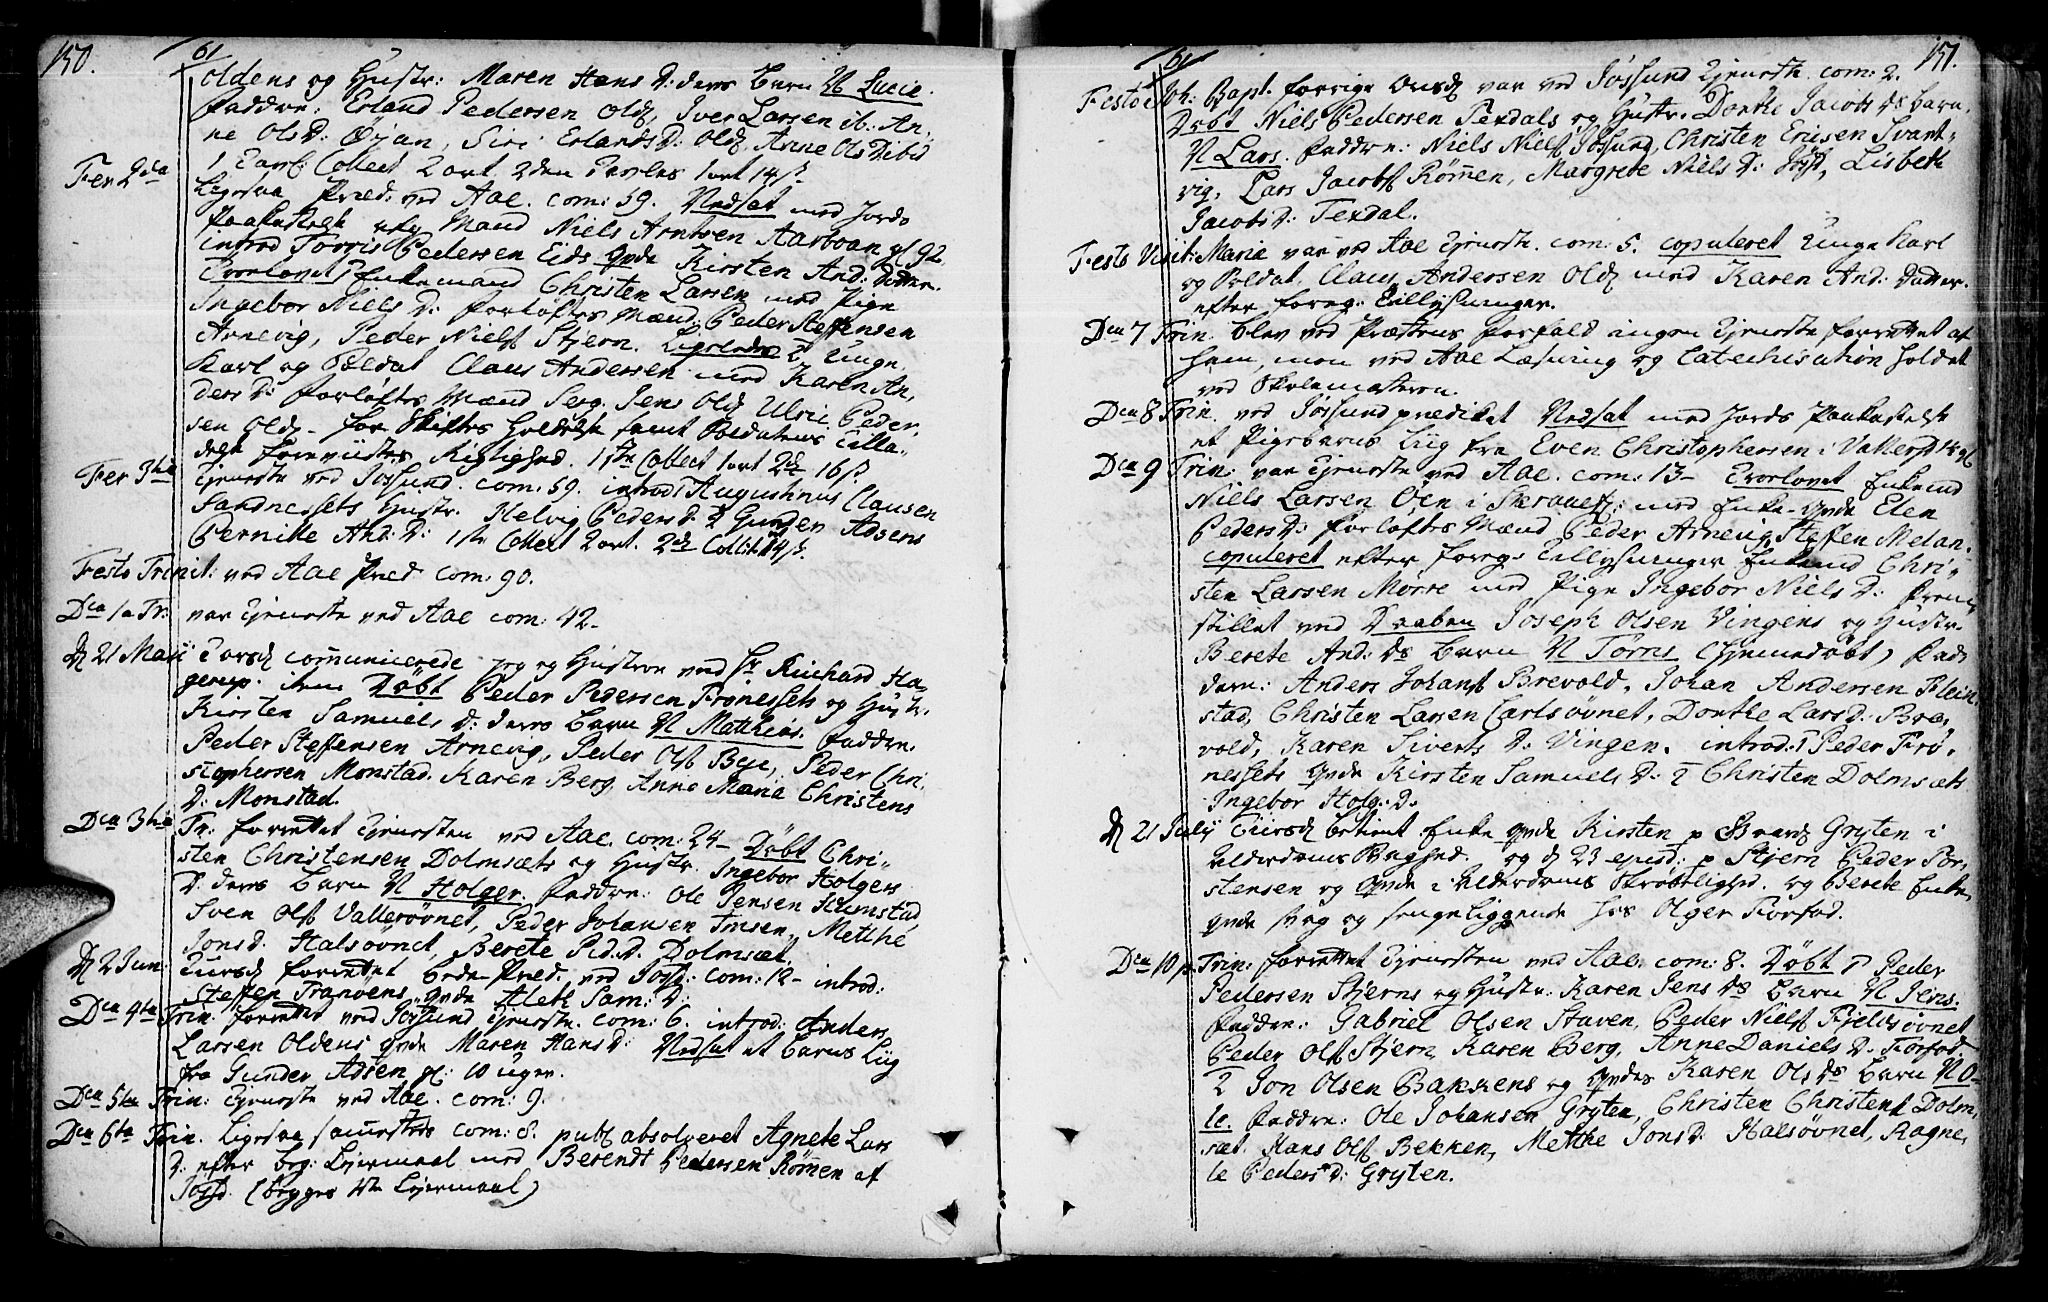 150. 61
oldens og Hustr: Maren Hans D: deres barn N Lucie.
Faddre: Erland Pedersen old, Iver Larsen ib. An,
ne Ols D: Øyan, Siri Erlands D: old, Anne Ols D ibid
1 Taxl Collect 2 ort. 2den Tavles 1 ort 14 s.
Fer 2da Ligesaa Præd: ved Aae. com: 59. Nedsat med Jords
Paakastelse Mand Niels Arntsen Aarboan gl 92
introd Torris Pedersen Eids qvde Kirsten And: Datter.
Trolovet 1 Enkemand Christen Larsen med Pige
Ingebor Niels D: Forløftes Mænd: Peder Steffensen
Arnevig, Peder Niels Stjern. Ligeledes 2, Unge
Karl og Soldat Claus Andersen med Karen An,
ders D: Forløftes Mænd Serg. Jens old Ulric Peder,
sen old - for Skiftes Holdelse samt Soldatens Tilla,
delse foreviistes Rigtighed. 1ste Collect 1 ort 2d 16 s.
Fer 3tia Tjeneste ved Jøssund. com: 59. introd: 1 Augustinus Clausen
Sandnessets Hustr. Helvig Peders D. 2 Gunder Adsens
Pernille And: D: 1ste Collect 2 ort. 2d Collect 14 s.
Festo Trinit: ved Aae Præd com: 90.
Dca 1a Tr: var Tjeneste ved Aae com: 42.
D 21 Maii Torsd communicerede jeg og Hustroe ved Hr Richard Ha,
gerup. item Døbt Peder Pedersen Frønessets og Hustr.
Kirsten Samuels D: deres barn N Matthias. Faddre.
Peder Steffensen Arnevig, Peder Ols Bye, Peder Chri,
stophersen Monstad. Karen Berg. Anne Maria Christens
D: Monstad.
Dca 3tia Tr: forrettet Tjenesten ved Aae. com: 24 - Døbt Chri-
sten Christensen Dolmsæts og Hustr. Ingebor Holgers
D. deres barn N Holger. Faddre: Ole Jensen Humstad
Sven Ols Vallersøvnet, Peder Johansen Imsen, Metthe
Jons D. Halsøvnet, Berete Pd.D. Dolmsæt.
D 2 Jun: Tiirsd forrettet bede-Præd. ved Joss: com: 12 - introd:
Steffen Tranøens qvde Aleth Sam: D:
Dca 4ta Trin. forrettet ved Jøssund Tjeneste. com: 6. introd: Anders
Larsen Oldens qvde Maren Hans D: Nedsat et barns Liig
fra Gunder Adsen gl: 10 uger.
Dca 5ta Trin: Tjeneste ved Aae. com: 9.
Dca 6ta Trin. Ligesaa samestæds com: 8. publ absolveret Agnete Lars
D: efter beg: Lejermaal med Berendt Pedersen Rømen af
Joss. (begges 1ste Lejermaal)
61 151.
Festo Joh: Bapt. forrige Onsd var ved Jøssund Tjeneste. com: 2.
Døbt Niels Pedersen Texdals og Hustr. Dorthe Jacobs Ds barn,
N Lars. Faddre: Niels Niels Jøssund, Christen Ericsen Svart-
vig, Lars Jacobs Rømen, Margrete Niels D: Jøss, Lisbeth
Jacobs D: Texdal.
Festo Visit: Mariæ var ved Aae Tjeneste. com: 5. copuleret Unge Karl
og Soldat, Claus Andersen old med Karen And: Datter.
efter foreg: Tillysninger.
Dca 7 Trin. blev ved Præstens Forfald ingen Tjeneste forrettet af
ham, men ved Aae Læsning og Catechisation holdet
ved Skolemesteren.
Dca 8 Trin. ved Jøssund prædiket Nedsat med Jords Paakastelse
et Pigebarns Liig fra Even Christophersen i Vallers
Dca 9 Trin: var Tjeneste ved Aae. com: 13 - Trolovet Enkemd
Niels Larsen Øen i : med Enke-qvde Elen
Peders D: Forløftes Mænd Peder Arnevig, Steffen Melan.
copuleret efter foreg: Tillysninger Enkemd Chri-
sten Larsen Mørre med Pige Ingebor Niels D: Frem,
stillet ved Daaben Joseph Olsen Vingens og Hustr.
Berete And: Ds barn N Tørris (hjemmedøbt) Fad,
dere: Anders Johans Brevold, Johan Andersen Klein
stad, Christen Larsen Carlsøvnet, Dorthe Lars D: Bre,
vold, Karen Siverts D: Vingen. introd: 1 Peder Frø,
nessets qvde Kirsten Samuels D: 2 Christen Dolmsæts
Ingebor Holg: D.
D 21 July Tiirsd betient Enke qvde Kirsten p Gryten i
Alderdoms Svaghed. og d 23 ejusd: p Stjern Peder Tor,
stensen og qvde i Alderdoms Skrøbelighed. og Berete Enke,
qvde svag og sengeliggende hos Olger Forfod.
Dca 10 p Trin: forrettet Tjenesten ved Aae. com: 8. Døbt 1 Peder
Pedersen Stjerns og Hustr: Karen Jens Ds barn N Jens.
Faddre: Gabriel Olsen Staven, Peder Niels Fjeldsøvnet
Peder Ols Stjern, Karen Berg, Anne Daniels D. Forfod
2 Jon Olsen Bakkens og qvdes Karen Ols Ds barn N O-
le. Faddre: Ole Johansen Gryten, Christen Christens Dolm,
sæt. Hans Ols Bekken, Metthe Jons D: Halsøvnet, Ragne,
le Peders D: Gryten.